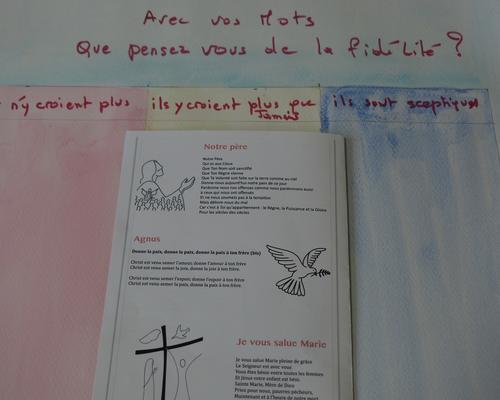 Avec vos Mots
Que pensez vous de la fidélité ?
n'y croient plus
ils y croient plus que
jamais
ils sont sceptiques
Notre père
Notre Père
Qui es aux Cieux
Que Ton Nom soit sanctifié
Que Ton Règne vienne
Que Ta Volonté soit faite sur la terre comme au ciel
Donne-nous aujourd'hui notre pain de ce jour
Pardonne nous nos offenses comme nous pardonnons aussi
à ceux qui nous ont offensés
Et ne nous soumets pas à la tentation
Mais délivre nous du mal
Car c'est à Toi qu'appartiennent : le Règne, la Puissance et la Gloire
Pour les siècles des siècles
Agnus
Donne la paix, donne la paix, donne la paix à ton frère (bis)
Christ est venu semer l'amour, donne l'amour à ton frère
Christ est venu semer la joie, donne la joie à ton frère.
Christ est venu semer l'espoir, donne l'espoir à ton frère
Christ est venu semer la paix, donne la paix à ton frère.
Je vous salue Marie
Je vous salue Marie pleine de grâce
Le Seigneur est avec vous
Vous êtes bénie entre toutes les femmes
Et Jésus votre enfant est béni.
Sainte Marie, Mère de Dieu
Priez pour nous, pauvres pécheurs,
Maintenant et à l'heure de notre mort